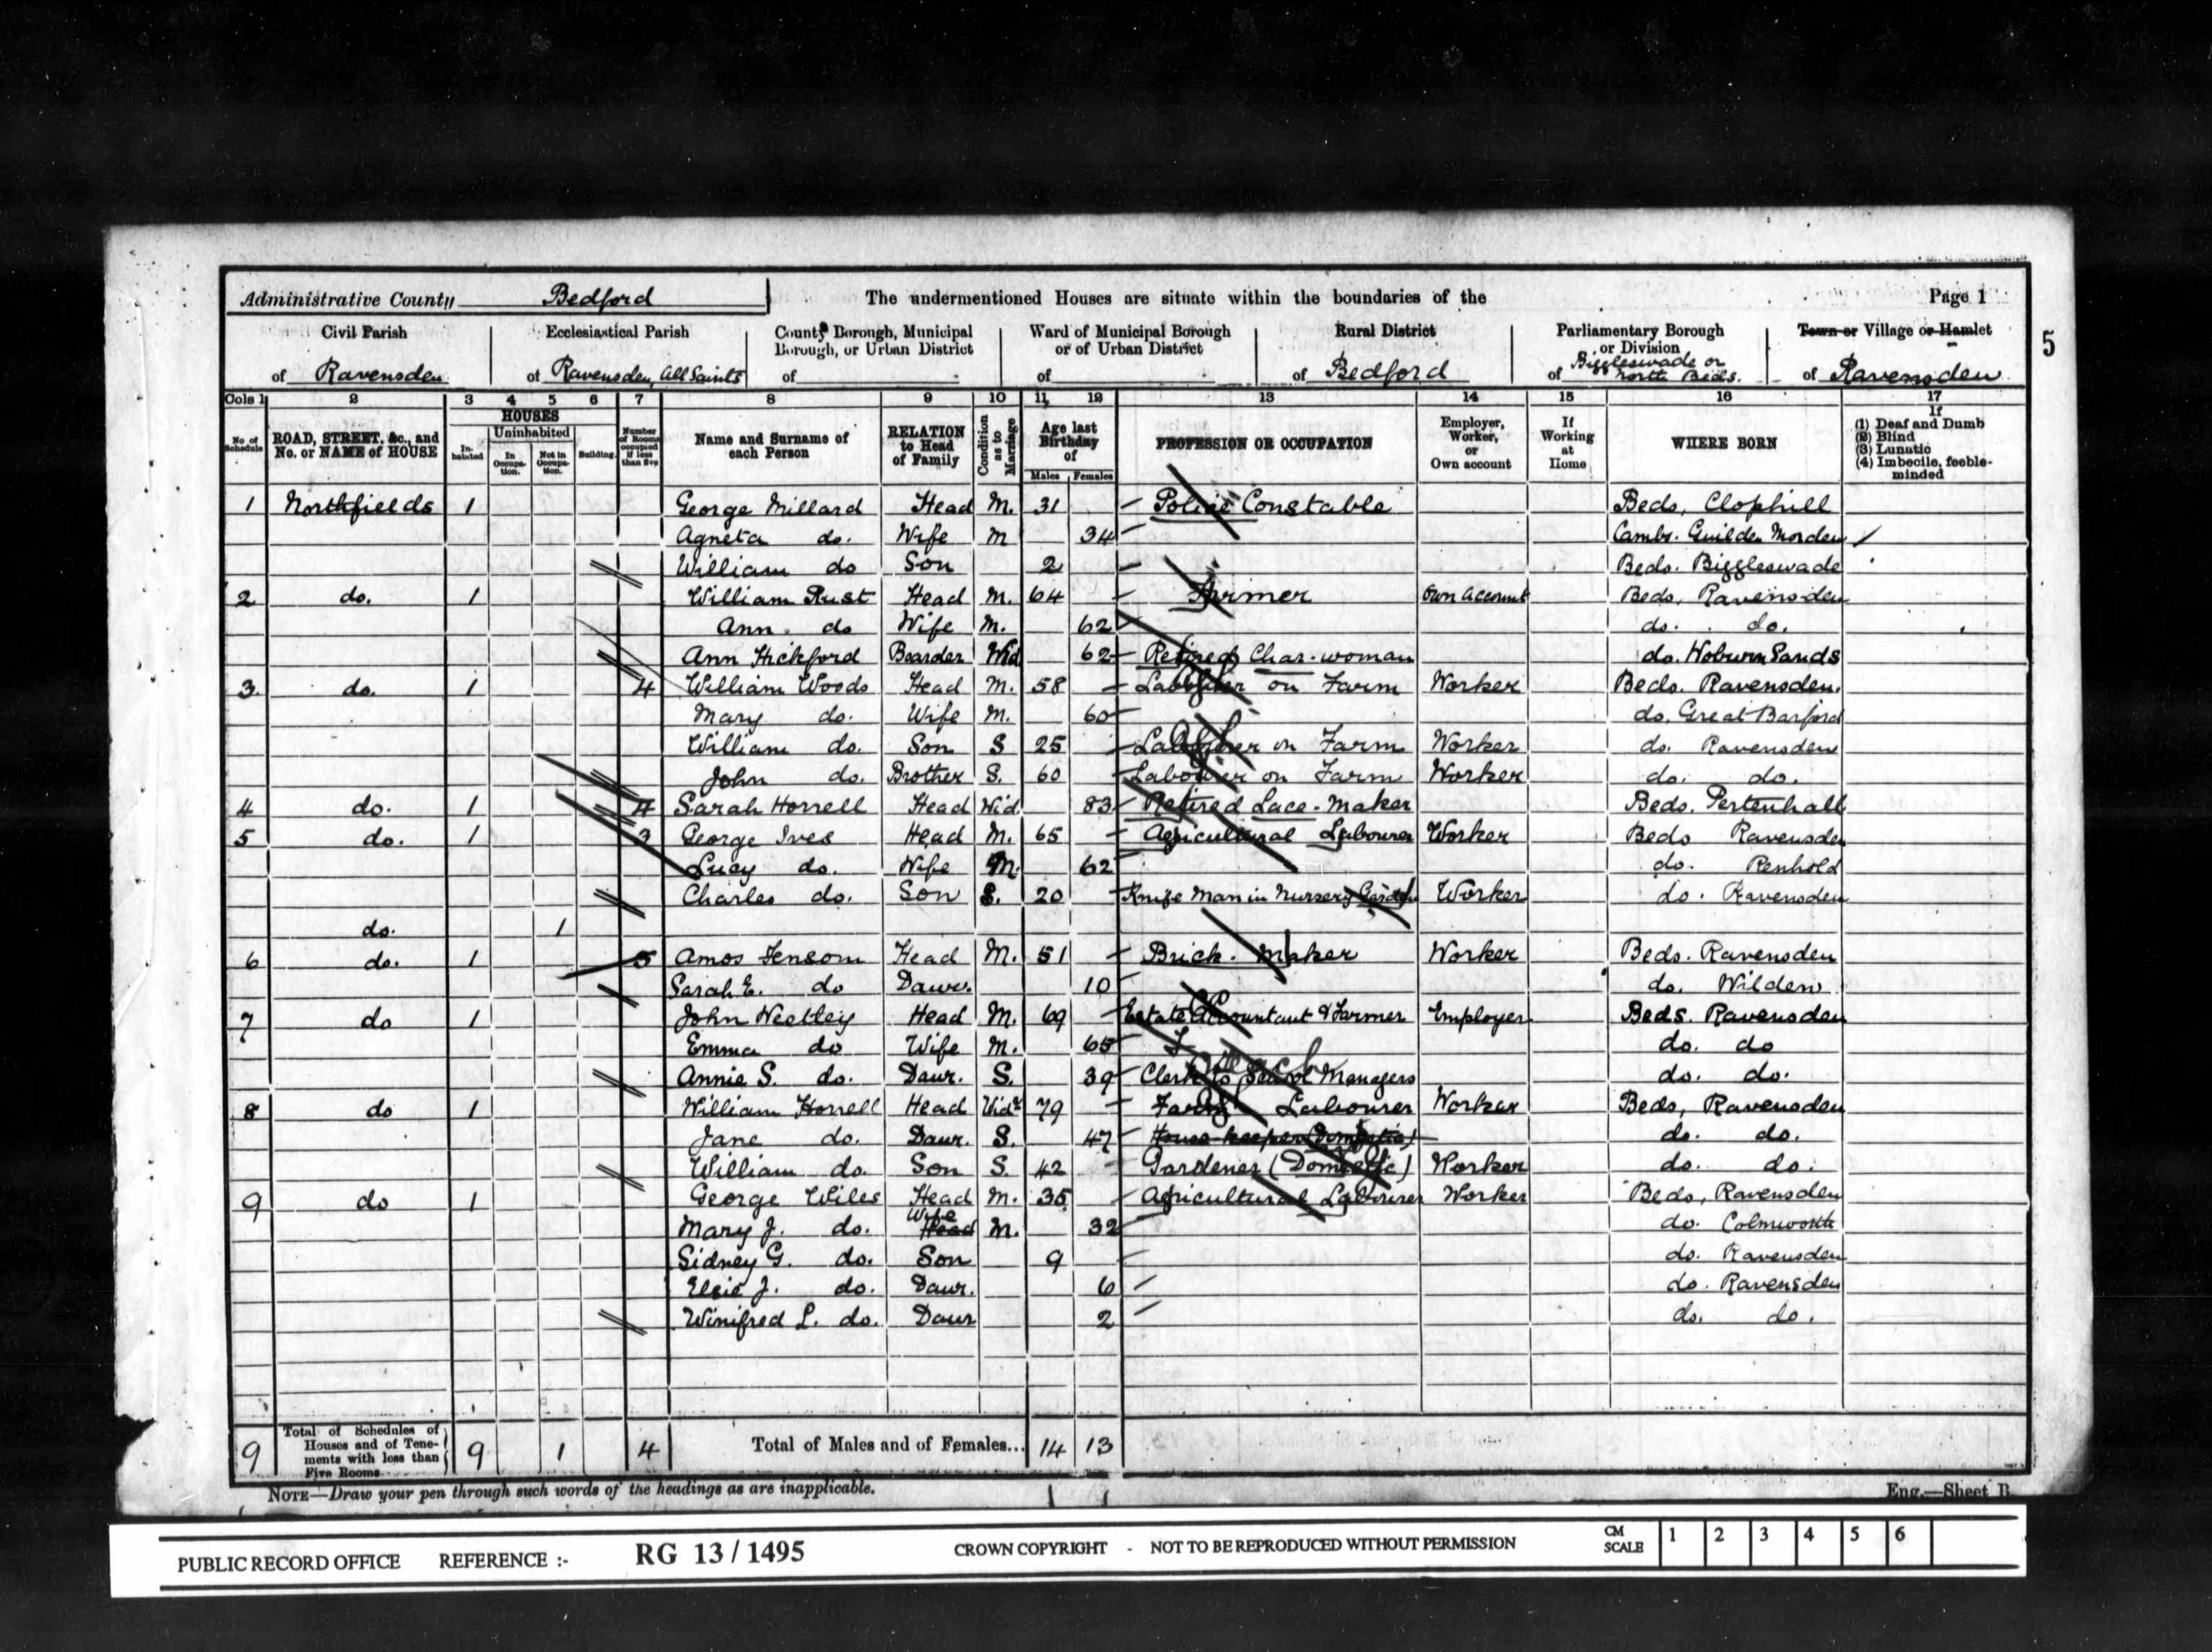 Administrative County Bedford The undermentioned Houses are situate within the boundaries of the Page 1
Civil Parish Ecclesiastical Parish County Borough, Municipal Borough, or Urban District Ward of Municipal Borough or of Urban District Rural District Parliamentary Borough or Division Town or Village or Hamlet
5
of Ravensden of Ravensden, All Saints of of of Bedford of Biggleswade or North Beds. of Ravensden
Cols 1 2 3 4 5 6 7 8 9 10 11 12 13 14 15 16 17
No of Schedule ROAD, STREET, &c., and No. or NAME of HOUSE HOUSES Inhabited Uninhabited In Occupation. Not in Occupation. Building. Number of Rooms occupied if less than five Name and Surname of each Person RELATION to Head of Family Condition as to Marriage Age last Birthday of Males Females PROFESSION OR OCCUPATION Employer, Worker, or Own account If Working at Home WHERE BORN If (1) Deaf and Dumb (2) Blind (3) Lunatic (4) Imbecile, feeble-minded
1 Northfields 1 George Millard Head M. 31 Police Constable Beds, Clophill
Agneta do. Wife M 34 Cambs. Guilden Morden
William do Son 2 Beds. Biggleswade
2 do. 1 William Rust Head M. 64 Farmer Own Account Beds, Ravensden
Ann do Wife M. 62 do. do.
Ann Hickford Boarder Wid 62 Retired Char-woman do. Woburn Sands
3. do. 1 4 William Woods Head M. 58 Labourer on Farm Worker Beds. Ravensden.
Mary do. Wife M. 60 do. Great Barford
William do. Son S 25 Labourer on Farm Worker do. Ravensden
John do. Brother S. 60 Labourer on Farm Worker do. do.
4 do. 1 4 Sarah Horrell Head Wid. 83 Retired Lace-Maker Beds. Pertenhall
5 do. 1 3 George Ives Head M. 65 Agricultural Labourer Worker Beds Ravensden
Lucy do. Wife M. 62 do. Renhold
Charles do. Son S. 20 Knife Man in Nursery Garden Worker do. Ravensden
do. 1
6 do. 1 Amos Fensom Head M. 51 Brick-Maker Worker Beds. Ravensden
Sarah E. do Daur. 10 do. Wilden
7 do 1 John Westley Head M. 69 Estate Accountant & Farmer Employer Beds. Ravensden
Emma do Wife M. 65 do. do
Annie S. do. Daur. S. 39 Clerk to School Managers do. do.
8 do 1 William Horrell Head Widr 79 Farm Labourer Worker Beds, Ravensden
Jane do. Daur. S. 47 House-keeper (Domestic) do. do.
William do. Son S. 42 Gardener (Domestic) Worker do. do.
9 do 1 George Wiles Head M. 35 Agricultural Labourer Worker Beds, Ravensden
Mary J. do. Head Wife M. 32 do. Colmworth
Sidney G. do. Son 9 do. Ravensden
Elsie J. do. Daur. 6 do. Ravensden
Winifred L. do. Daur 2 do. do.
9 Total of Schedules of Houses and of Tenements with less than Five Rooms 9 1 4 Total of Males and of Females... 14 13
NOTE—Draw your pen through such words of the headings as are inapplicable. Eng.—Sheet B
PUBLIC RECORD OFFICE REFERENCE :- RG 13/1495 CROWN COPYRIGHT - NOT TO BE REPRODUCED WITHOUT PERMISSION CM SCALE 1 2 3 4 5 6